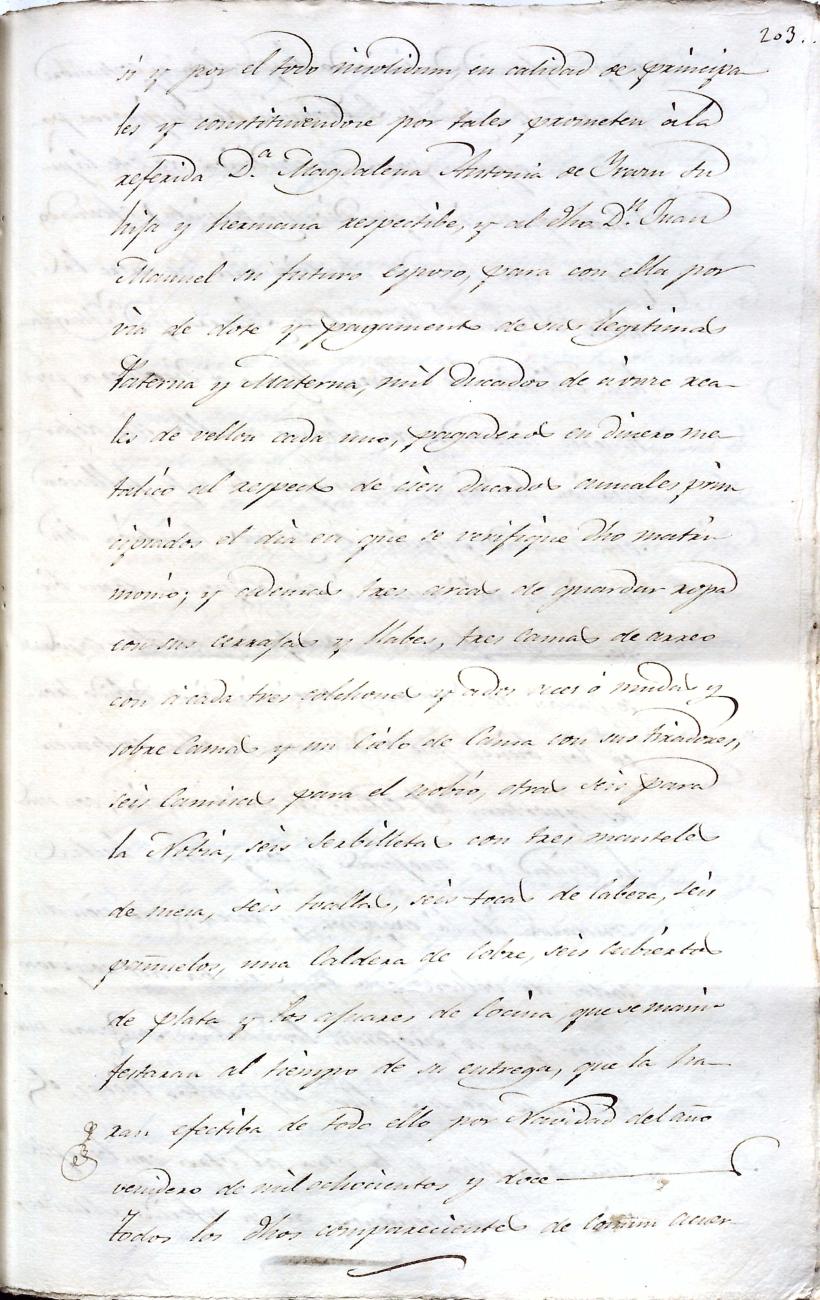 203.
si y por el todo insolidum, en calidad de principa
les y constituiendose por tales prometen à la
referida D.ª Magdalena Antonia de Yraru su
hija y hermana respectibe, y al dho D.n Juan
Manuel su futuro esposo, para con ella por
via de dote y pagamento de sus legitimas
Paterna y Materna, mil Ducados de à onze rea-
les de vellon cada uno, pagaderos en dinero me-
talico al respecto de cien Ducados annuales, prin
cipiados el dia en que se verifique dho matri
monio; y ademas tres arcas de guardar ropa
con sus cerrajas y llabes, tres camas de arreo
con à cada tres colchones y à dos veces ó mudas y
sobre Camas y un Cielo de Cama con sus tiradores,
seis Camisas para el nobio, otras seis para
la Nobia, seis Serbilletas con tres manteles
de mesa, seis toallas, seis tocas de Cabeza, seis
pañuelos, una Caldera de Cobre, seis Cubiertos
de plata y los ajuares de Cocina que se mani-
festaran al tiempo de su entrega, que la ha-
ran efectiba de todo ello por Navidad del año
venidero de mil ochocientos y doce
Todos los dhos comparecientes de Comun acuer-